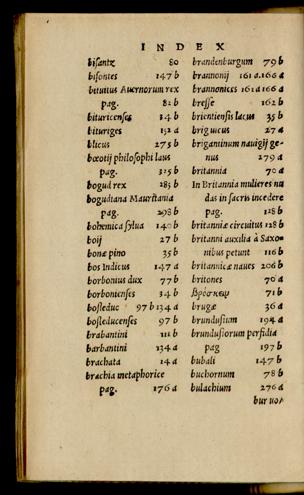 INDEX
bisantz 80
bisontes 147 b
bituitus Auernorum rex
pag. 82 b
bituricenses 14 b
bituriges 152 a
blicus 275 b
bœotij philosophi laus
pag. 325 b
bogud rex 285 b
bogudiana Mauritania
pag. 298 b
bohemica sylua 140 b
boij 27 b
bonæ pino 35 b
bos Indicus 147 a
borbonius dux 77 b
borbonienses 14 b
bosleduc 97 b 134 a
bosleducenses 97 b
brabantini 111 b
barbantini 134 a
brachata 14 a
brachia metaphorice
pag. 176 a
brandenburgum 79 b
brannonij 161 a. 166 a
brannonices 161 a 166 a
bresse 162 b
brientiensis lacus 35 b
briguicus 27 a
brigantinum nauigij ge-
nus 279 a
britannia 70 a
In Britannia mulieres nu
das in sacris incedere
pag. 128 b
britanniæ circuitus 128 b
britanni auxilia à Saxo-
nibus petunt 116 b
britannicæ naues 206 b
britones 70 a
71 b
brugæ 36 a
brundusium 194 a
brundusiorum perfidia
pag 197 b
bubali 147 b
buchornum 78 b
bulachium 276 a